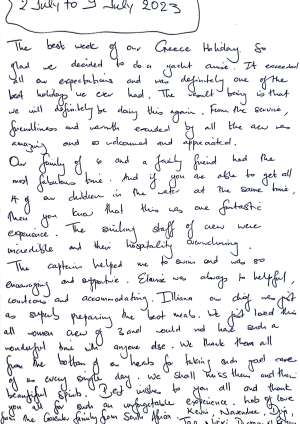 2 July to 9 July 2023
The best week of our Greece Holiday. So
glad we decided to do a yacht cruise. It exceeded
all our expectations and was definitely one of the
best holidays we ever had. The being is that
we will definitely be doing this again. From the service,
friendliness and warmth exuded by all the crew was
amazing and so welcomed and appreciated.
Our family of 6 and a family friend had the
most fabulous time. And if you are able to get all
4 of our children in the water at the same time,
then you know that this was one fantastic
experience. The smiling staff of crew were
incredible and their hospitality overwhelming.
The captain helped me to swim and was so
encouraging and supportive. Elaine was always so helpful,
courteous and accommodating. Illiana our chef was just
as superb preparing the best meals. We just loved this
all women crew of 3 and would not have such a
wonderful time with anyone else. We thank them all
from the bottom of our hearts for taking such good care
of us every single day. We shall miss them and their
beautiful spirits. Best wishes to you all and thank
you all for such an unforgettable experience. Lots of love
from the family from South Africa